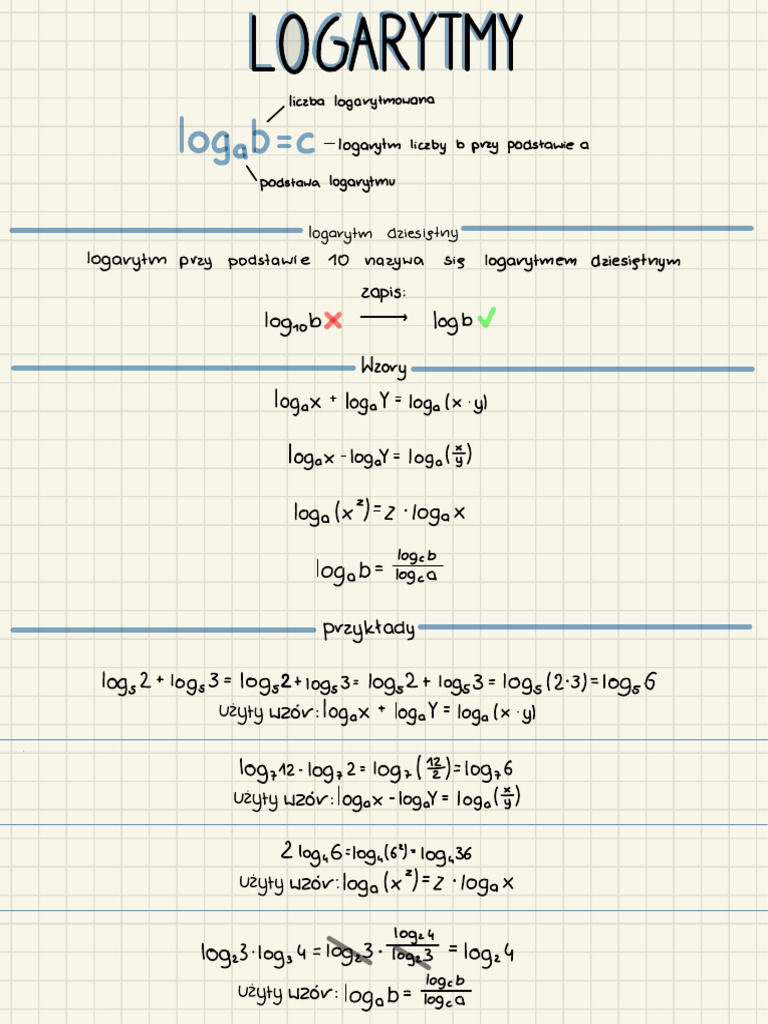 LOGARYTMY
liczba logarytmowana
logₐb=c – logarytm liczby b przy podstawie a
podstawa logarytmu
logarytm dziesiętny
logarytm przy podstawie 10 nazywa się logarytmem dziesiętnym
zapis:
log₁₀b ❌ → log b ✓
Wzory
logₐx + logₐY = logₐ(x·y)
logₐx - logₐY = logₐ(x/y)
logₐ(x^z) = z · logₐx
logₐb = log_c b / log_c a
przykłady
log₅2 + log₅3 = log₅2 + log₅3 = log₅2 + log₅3 = log₅(2·3) = log₅6
użyty wzór: logₐx + logₐY = logₐ(x·y)
log₇12 - log₇2 = log₇(12/2) = log₇6
użyty wzór: logₐx - logₐY = logₐ(x/y)
2 log₄6 = log₄(6²) = log₄36
użyty wzór: logₐ(x^z) = z · logₐx
log₂3 · log₃4 = log₂3 · log₂4 / log₂3 = log₂4
użyty wzór: logₐb = log_c b / log_c a